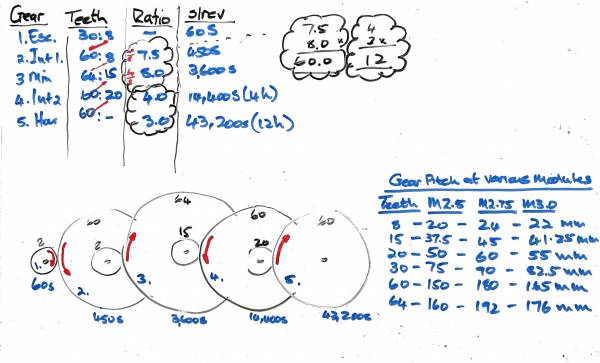 Gear Teeth Ratio s/rev
1. Esc. 30:8 - 60s
2. Int1. 60:8 7.5 450s
3 Min 64:15 8.0 3,600s
4. Int2 60:20 4.0 14,400s (4h)
5. Hour 60:- 3.0 43,200s (12h)
7.5
8.0 x
60.0
4
3x
12
64
60 60 60
8 8 15 20
1. 2. 3. 4. 5.
60s 450s 3,600s 14,400s 43,200s
Gear Pitch at various modules
Teeth M2.5 M2.75 M3.0
8 - 20 - 24 - 22 mm
15 - 37.5 - 45 - 41.25mm
20 - 50 - 60 - 55 mm
30 - 75 - 90 - 82.5mm
60 - 150 - 180 - 165mm
64 - 160 - 192 - 176mm